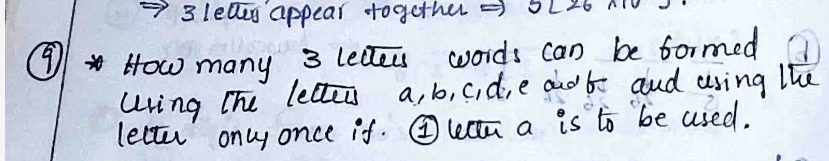 ⇒ 3 letters appear together ⇒ 5 [26 x10
⑨ * How many 3 letters words can be formed
using the letters a, b, c, d, e and f and using the
letter only once if. ① letter a is to be used.